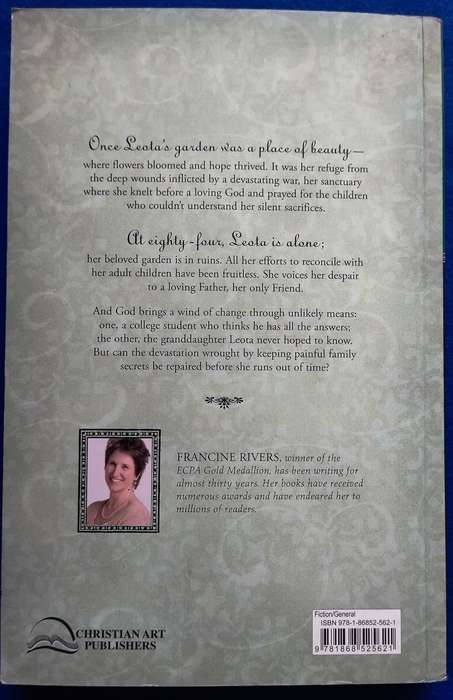 Once Leota's garden was a place of beauty—
where flowers bloomed and hope thrived. It was her refuge from
the deep wounds inflicted by a devastating war, her sanctuary
where she knelt before a loving God and prayed for the children
who couldn't understand her silent sacrifices.
At eighty-four, Leota is alone;
her beloved garden is in ruins. All her efforts to reconcile with
her adult children have been fruitless. She voices her despair
to a loving Father, her only Friend.
And God brings a wind of change through unlikely means:
one, a college student who thinks he has all the answers;
the other, the granddaughter Leota never hoped to know.
But can the devastation wrought by keeping painful family
secrets be repaired before she runs out of time?
FRANCINE RIVERS, winner of the
ECPA Gold Medallion, has been writing for
almost thirty years. Her books have received
numerous awards and have endeared her to
millions of readers.
CHRISTIAN ART
PUBLISHERS
Fiction/General
ISBN 978-1-86852-562-1
9 781868 525621